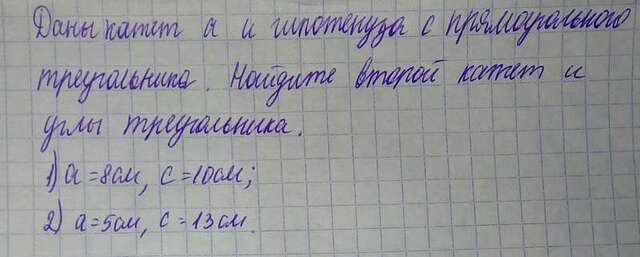 Даны катет а и гипотенуза с прямоугольного
треугольника. Найдите второй катет и
углы треугольника.
1) а=8см, с=10см;
2) а=5см, с=13см.